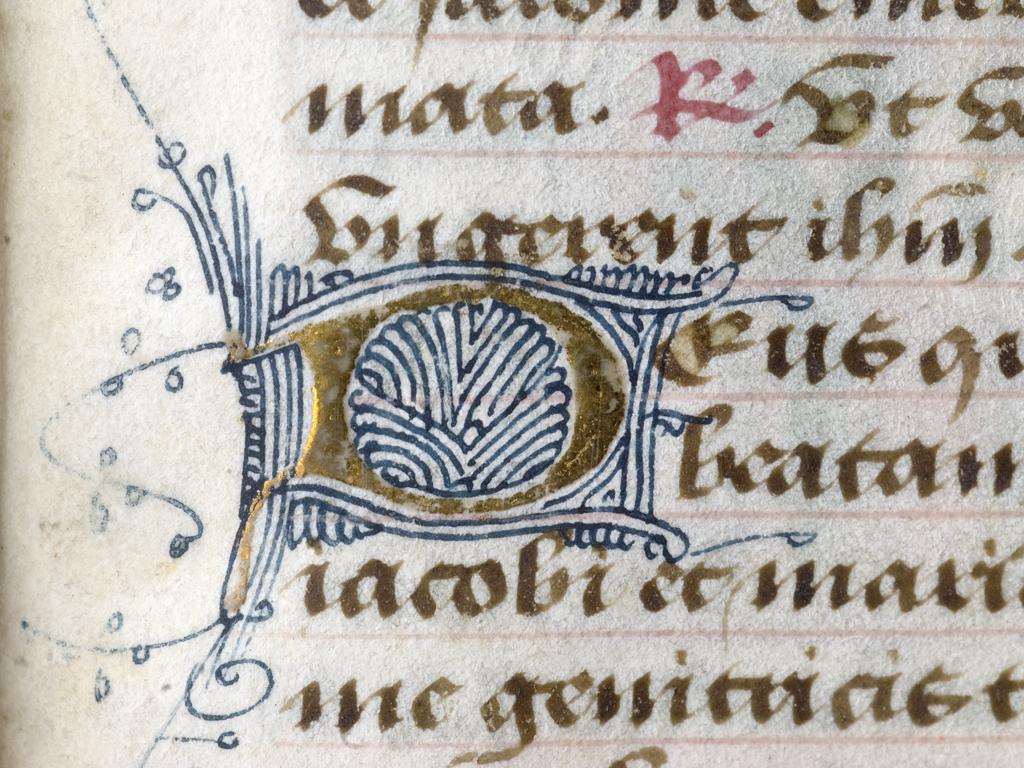 mata. R. Vt v
vngerent ihm
DEUS qu
beatam
iacobi et mari
me genitricis t